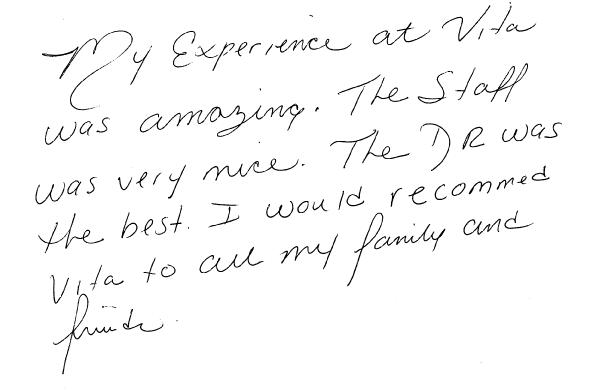 My Experience at Vita
was amazing. The Staff
was very nice. The DR was
the best. I would recommed
Vita to all my family and
friends.